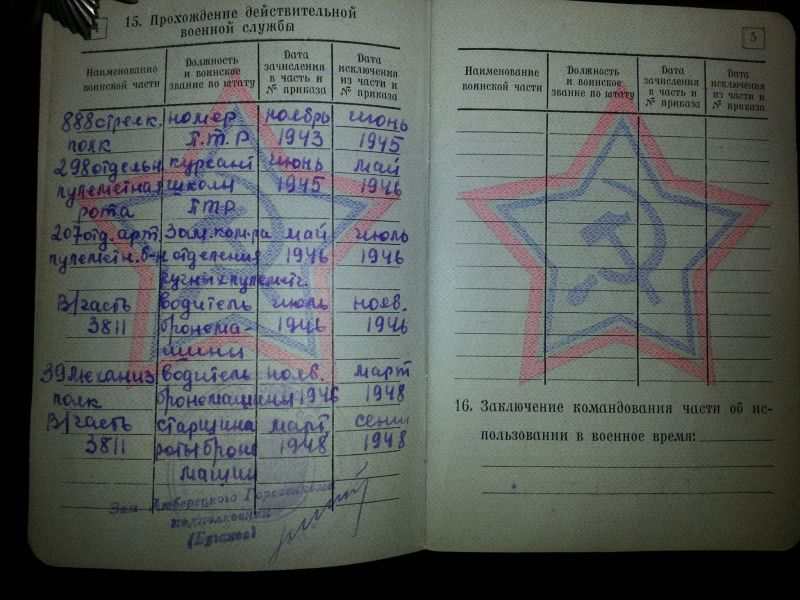 4
15. Прохождение действительной
военной службы
Наименование воинской части
Должность и воинское звание по штату
Дата зачисления в часть и № приказа
Дата исключения из части и № приказа
888 стрелк. номер ноябрь июнь
полк П.Т.Р 1943 1945
298 отдельн курсант июнь май
пулеметная школы 1945 1946
рота ПТР
207 отд. арт. Зам. ком-ра май июль
пулеметн. б-н отделения 1946 1946
ручных пулемет.
В/часть водитель июль нояв.
3811 бронома- 1946 1946
шины
39 механиз водитель нояв. март
полк бромомашины 1946 1948
В/часть старшина март сент
3811 роты броне 1948 1948
машин
Зам. Люберецкого Горвоенкома
подполковник
5
Наименование воинской части
Должность и воинское звание по штату
Дата зачисления в часть и № приказа
Дата исключения из части и № приказа
16. Заключение командования части об ис-
пользовании в военное время: